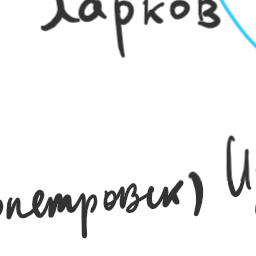 Харков
опетровск)